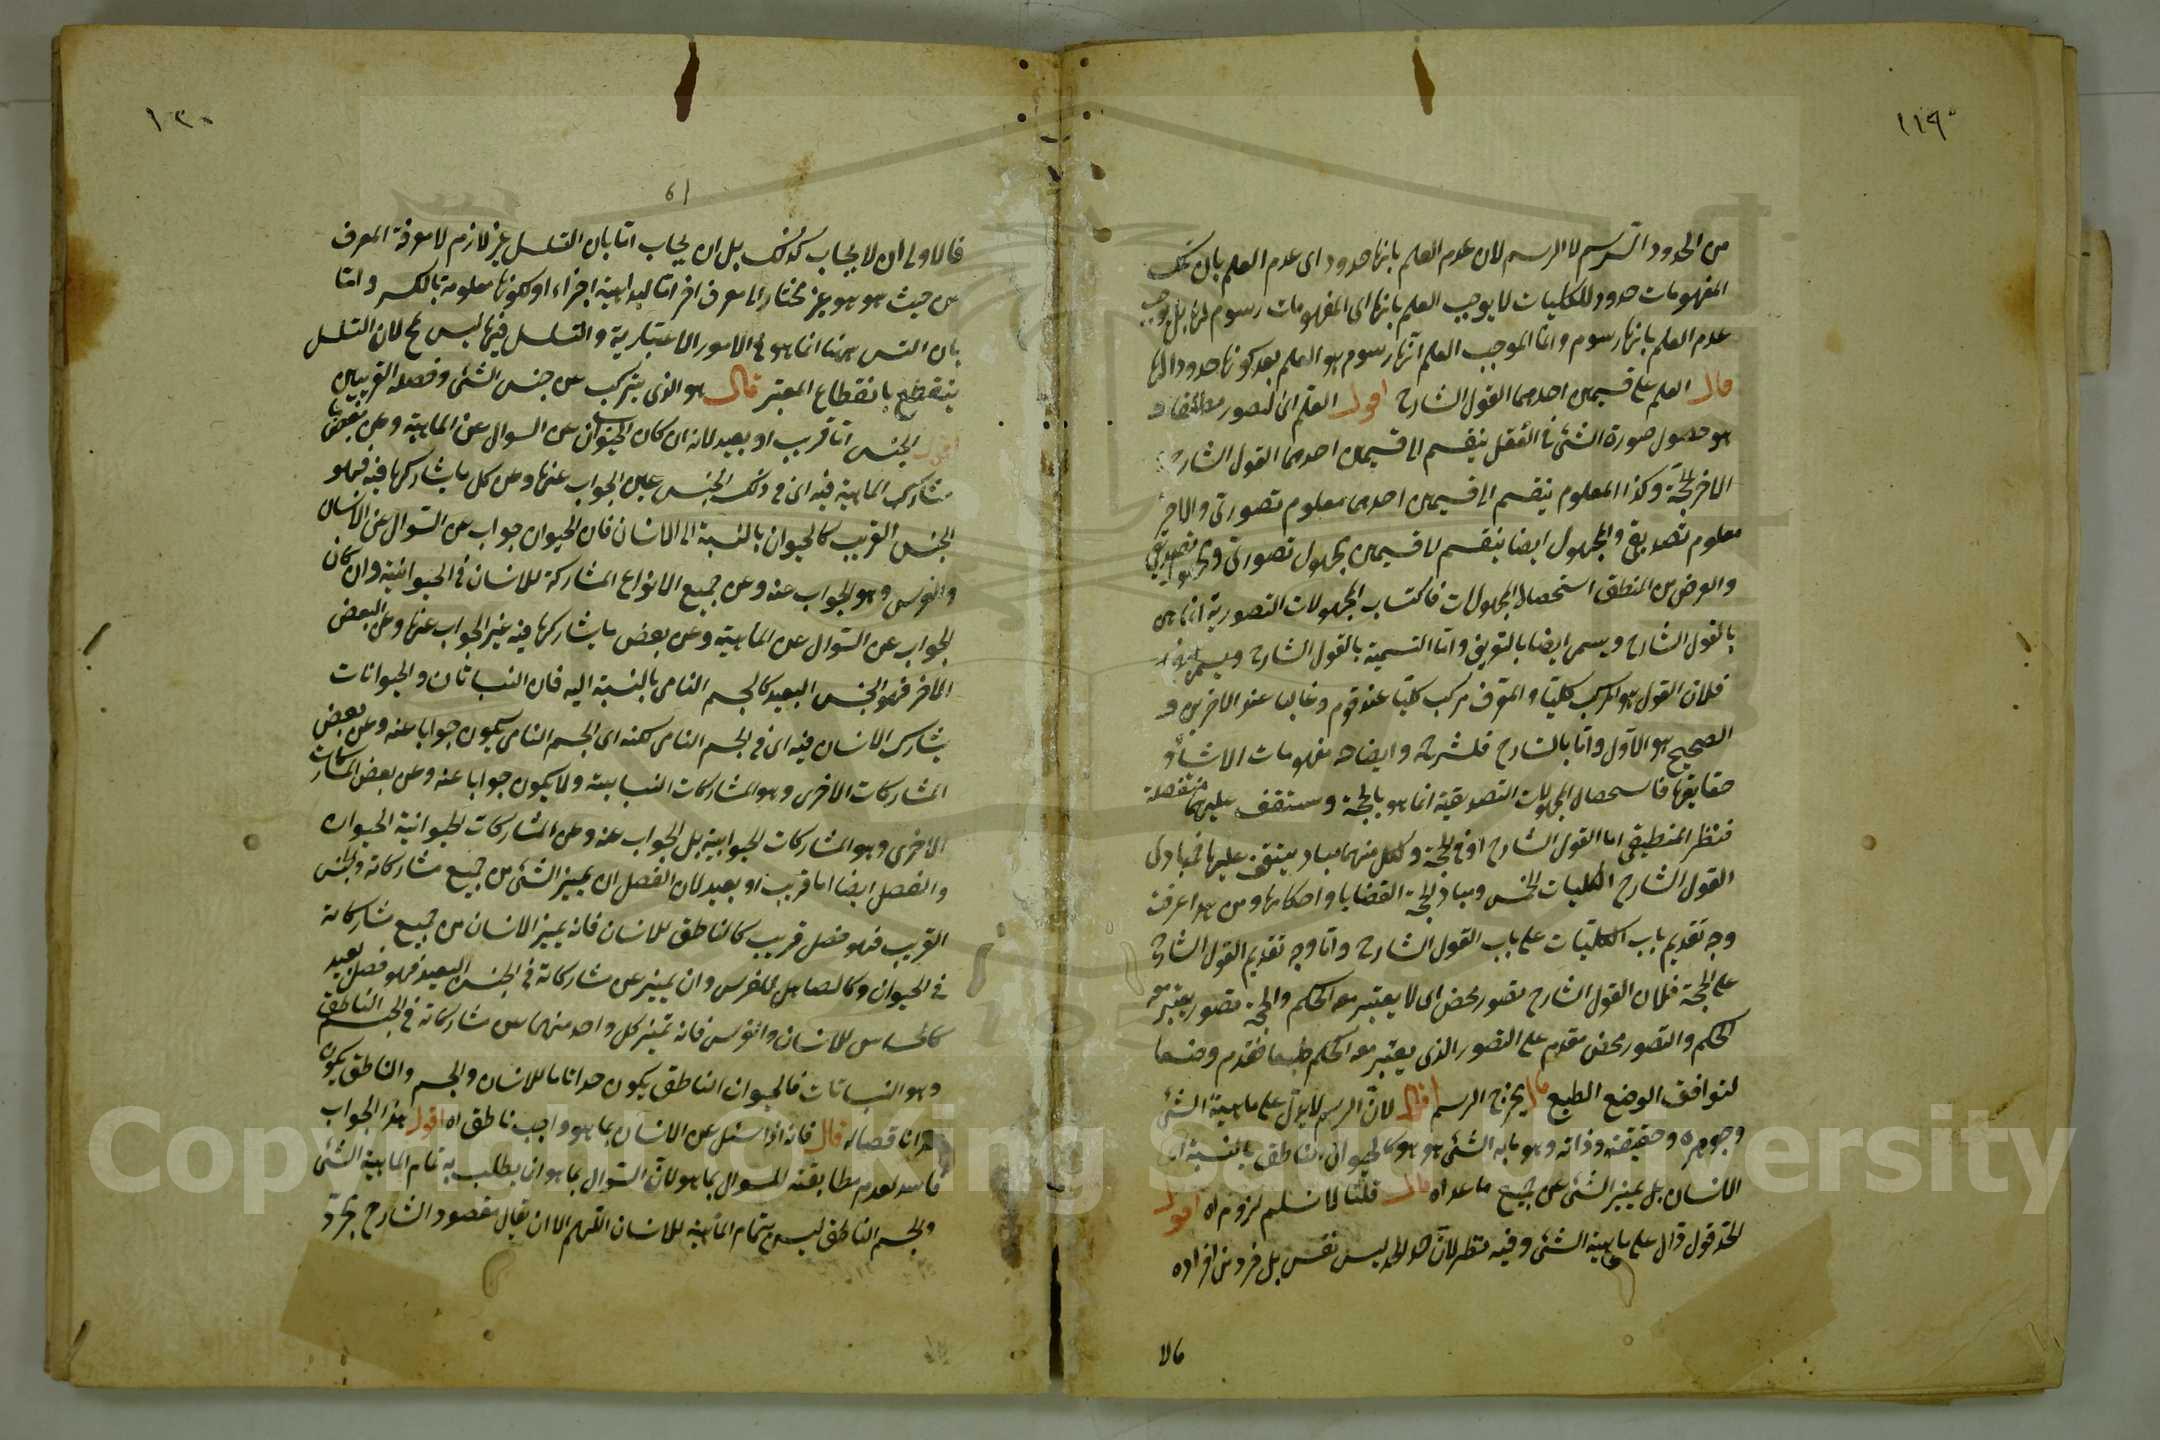 ١١٩
من الحدود الترسم لا الرسم لان عدم العلم بانها حدود اى عدم العلم بان تلك
المفهومات حدود للكليات لا يوجب العلم بانها اى المفهومات رسوم لها بل يوجب
عدم العلم بانها رسوم وانما الموجب العلم انها رسوم هو العلم بعدم كونها حدودا لها
قال العلم على قسمين احدهما القول الشارح اقول العلم اى التصور مطلقا و
هو حصول صورة الشئ فى العقل ينقسم الى قسمين احدهما القول الشارح
الاخر الحجة وكذا المعلوم ينقسم الى قسمين احدهما معلوم تصورى والاخر
معلوم تصديقى والمجهول ايضا ينقسم الى قسمين مجهول تصورى ومجهول تصديقى
والغرض من المنطق استحصال المجهولات فاكتساب المجهولات التصورية انما هى
بالقول الشارح ويسمى ايضا بالتعريف واما التسمية بالقول الشارح
فلان القول هو المركب كليا والمعرف مركب كليا عند قوم وغالبا عند الاخرين و
الصحيح هو الاول واما بالشارح فلشرحه وايضاحه مفهومات الاشياء و
حقايقها فاستحصال المجهولات التصديقية انما هو بالحجة وستقف عليهما مفصلة
فنظر المنطيقى اما القول الشارح او فى الحجة ولكل منهما مباد يتوقف عليها فمبادى
القول الشارح الكليات الخمس ومبادى الحجة القضايا واحكامها ومن هذا عرفت
وجه تقديم باب الكليات على باب القول الشارح واما وجه تقديم القول الشارح
على الحجة فلان القول الشارح تصور محض اى لا يعتبر معه الحكم والحجة تصور يعتبر معه
الحكم والتصور محض مقدم على التصور الذى يعتبر معه الحكم طبعا فقدم وضعا
لتوافق الوضع الطبع قال يخرج الرسم اقول لان الرسم لا يدل على ماهية الشئ
وجوهره وحقيقته وذاته وهو ما به الشئ هو هو كالحيوان الناطق بالنسبة الى
الانسان بل يميز الشئ عن جميع ما عداه قال قلنا لا نسلم لزوم اه اقول
الحد قول دال على ماهية الشئ وفيه نظر لان حد الحد ليس نفس بل فرد من افراده
١٢٠
61
فالاولى ان لا يجاب كذلك بل ان يجاب اما بان التسلسل غير لازم لا معرفة المعرف
من حيث هو هو غير محتاج الى معرف اخر اما لبداهية اجزاءه او لكونها معلومة بالكسر واما
بان التس ههنا انما هو فى الامور الاعتبارية والتسلسل فيها ليس مح لان التسلسل
ينقطع بانقطاع المعتبر قال هو الذى يتركب عن جنس الشئ وفصله القريبين
اقول الجنس اما قريب او بعيد لانه ان كان الجواب عن السوال عن الماهية وعن بعض ما
يشارك الماهية فيه اى فى ذلك الجنس عين الجواب عنها وعن كل ما يشاركها فيه فهو
الجنس القريب كالحيوان بالنسبة الى الانسان فان الحيوان جواب عن السوال عن الانسان
والفرس وهو الجواب عنه وعن جميع الانواع المشاركة للانسان فى الحيوانية وان كان
الجواب عن السوال عن الماهية وعن بعض ما يشاركها فيه غير الجواب عنها وعن البعض
الاخر فهو الجنس البعيد كالجسم النامى بالنسبة اليه فان النباتات والحيوانات
يشارك الانسان فيه اى فى الجسم النامى لكنه اى الجسم النامى يكون جوابا عنه وعن بعض
المشاركات الاخرى وهو المشاركات النباتية ولا يكون جوابا عنه وعن بعض المشاركات
الاخرى وهو المشاركات الحيوانية بل الجواب عنه وعن المشاركات الحيوانية الحيوان
والفصل ايضا اما قريب او بعيد لان الفصل ان يميز الشئ من جميع مشاركاته والجنس
القريب فهو فصل قريب كالناطق للانسان فانه يميز الانسان من جميع مشاركاته
فى الحيوان وكالصاهل للفرس وان يميز عن مشاركاته فى الجنس البعيد فهو فصل بعيد
كالحساس للانسان والفرس فانه تميز كل واحد منهما من مشاركاته فى الجسم النامى
وهو النباتات فالحيوان الناطق يكون حدا تاما للانسان والجسم الناطق يكون
حدا ناقصا له قال فانه اذا سئل عن الانسان بما هو واجيب ناطق اه اقول هذا الجواب
فاسد لعدم مطابقته للسوال بما هو لان السوال بما هو ان يطلب به تمام الماهية الشئ
والجسم الناطق ليس بتمام الماهية للانسان اللهم الا ان يقال مقصود الشارح مجرد